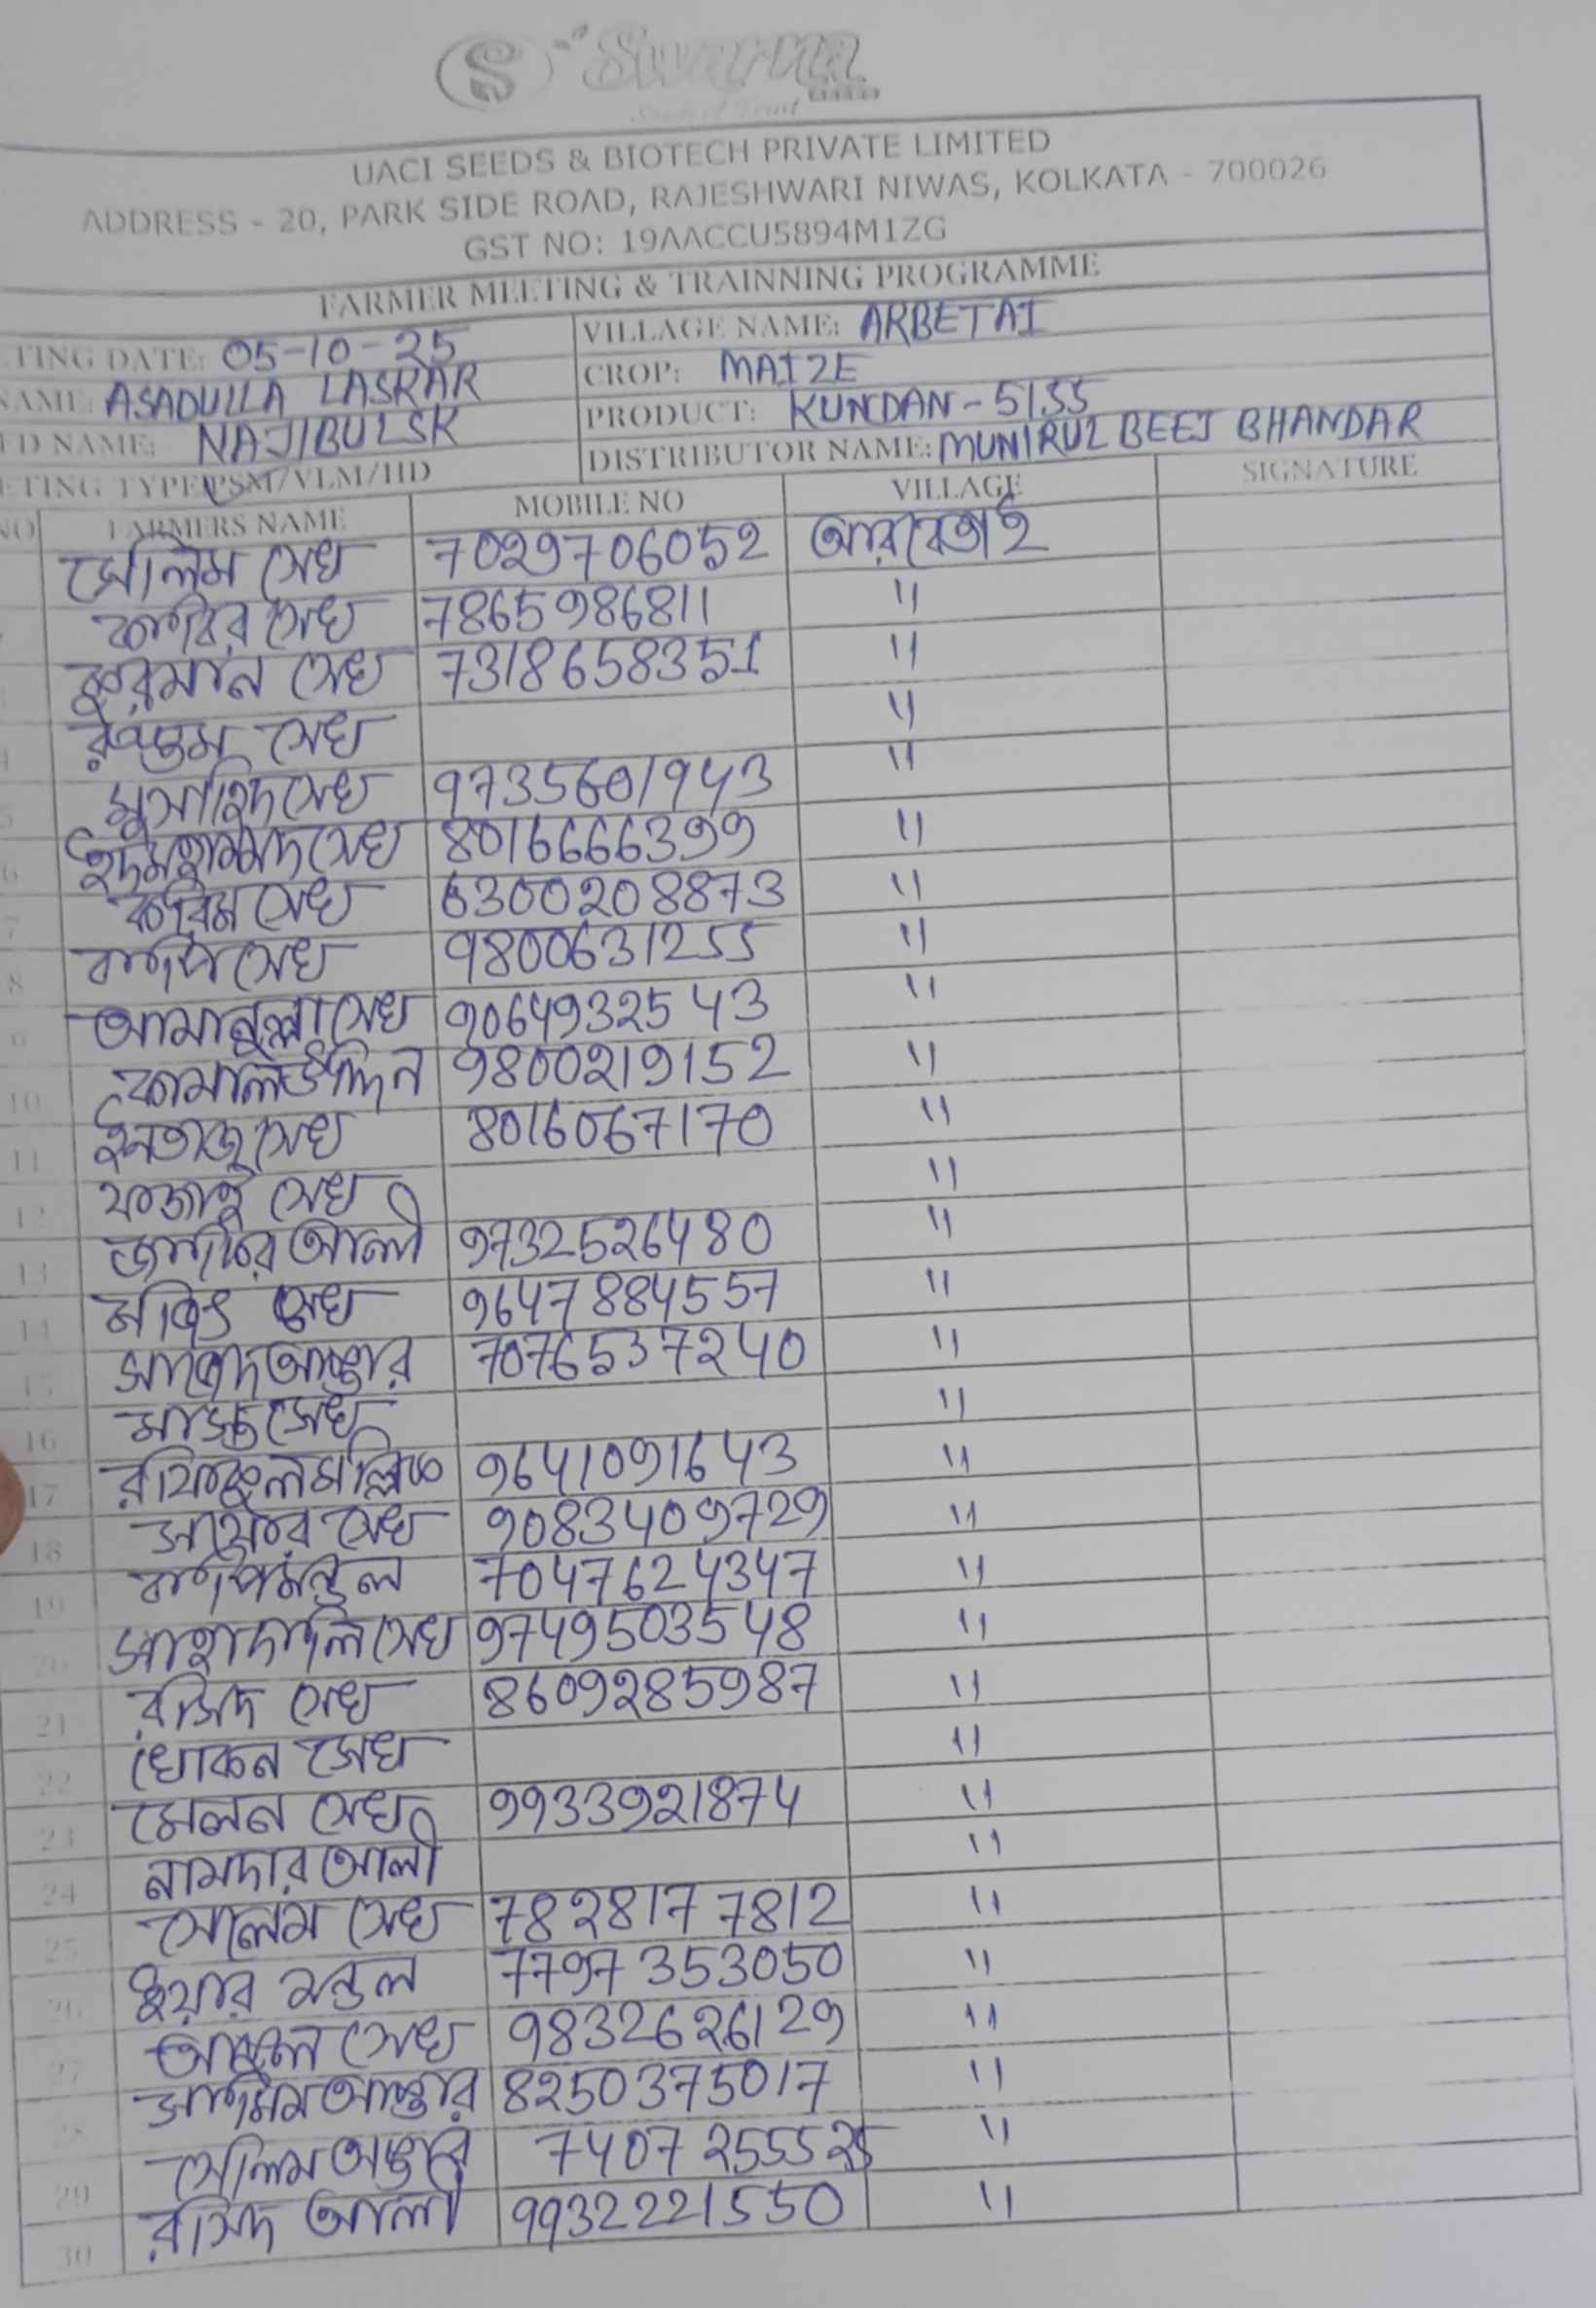 S Swarna
SEEDS
Seeds of Trust
UACI SEEDS & BIOTECH PRIVATE LIMITED
ADDRESS - 20, PARK SIDE ROAD, RAJESHWARI NIWAS, KOLKATA - 700026
GST NO: 19AACCU5894M1ZG
FARMER MEETING & TRAINNING PROGRAMME
TING DATE: 05-10-25 VILLAGE NAME: ARBETAI
NAME: ASADULLA LASKAR CROP: MAIZE
D NAME: NAJIBUL SK PRODUCT: KUNDAN-5155
ETING TYPE PSM/VLM/HD DISTRIBUTOR NAME: MUNIRUL BEEJ BHANDAR
NO FARMERS NAME MOBILE NO VILLAGE SIGNATURE
সেলিম সেখ 7029706052 আরবেতাই
সেখ 7865986811 "
ফুরমান সেখ 7318658351 "
রুস্তম সেখ "
5 মুসাহিদ সেখ 9735601943 "
6 সেখ 8016666399 "
7 সেখ 6300208873 "
8 সেখ 9800631255 "
আমানুল্লা সেখ 9064932543 "
10 কামালউদ্দিন 9800219152 "
11 ইনতাজ সেখ 8016067170 "
12 সেখ "
13 আলী 9732526480 "
14 সেখ 9647884557 "
15 7076537240 "
16 সেখ "
17 রফিকুল মল্লিক 9641091643 "
18 সেখ 9083409729 "
19 মন্ডল 7047624347 "
20 সেখ 9749503548 "
21 রসিদ সেখ 8609285987 "
22 খোকন সেখ "
23 মেলন সেখ 9933921874 "
24 নামদার আলী "
25 সালেম সেখ 7828177812 "
26 মন্ডল 7797353050 "
27 সেখ 9832626129 "
28 8250375017 "
29 সেলিম 7407255525 "
30 রসিদ আলী 9932221550 "